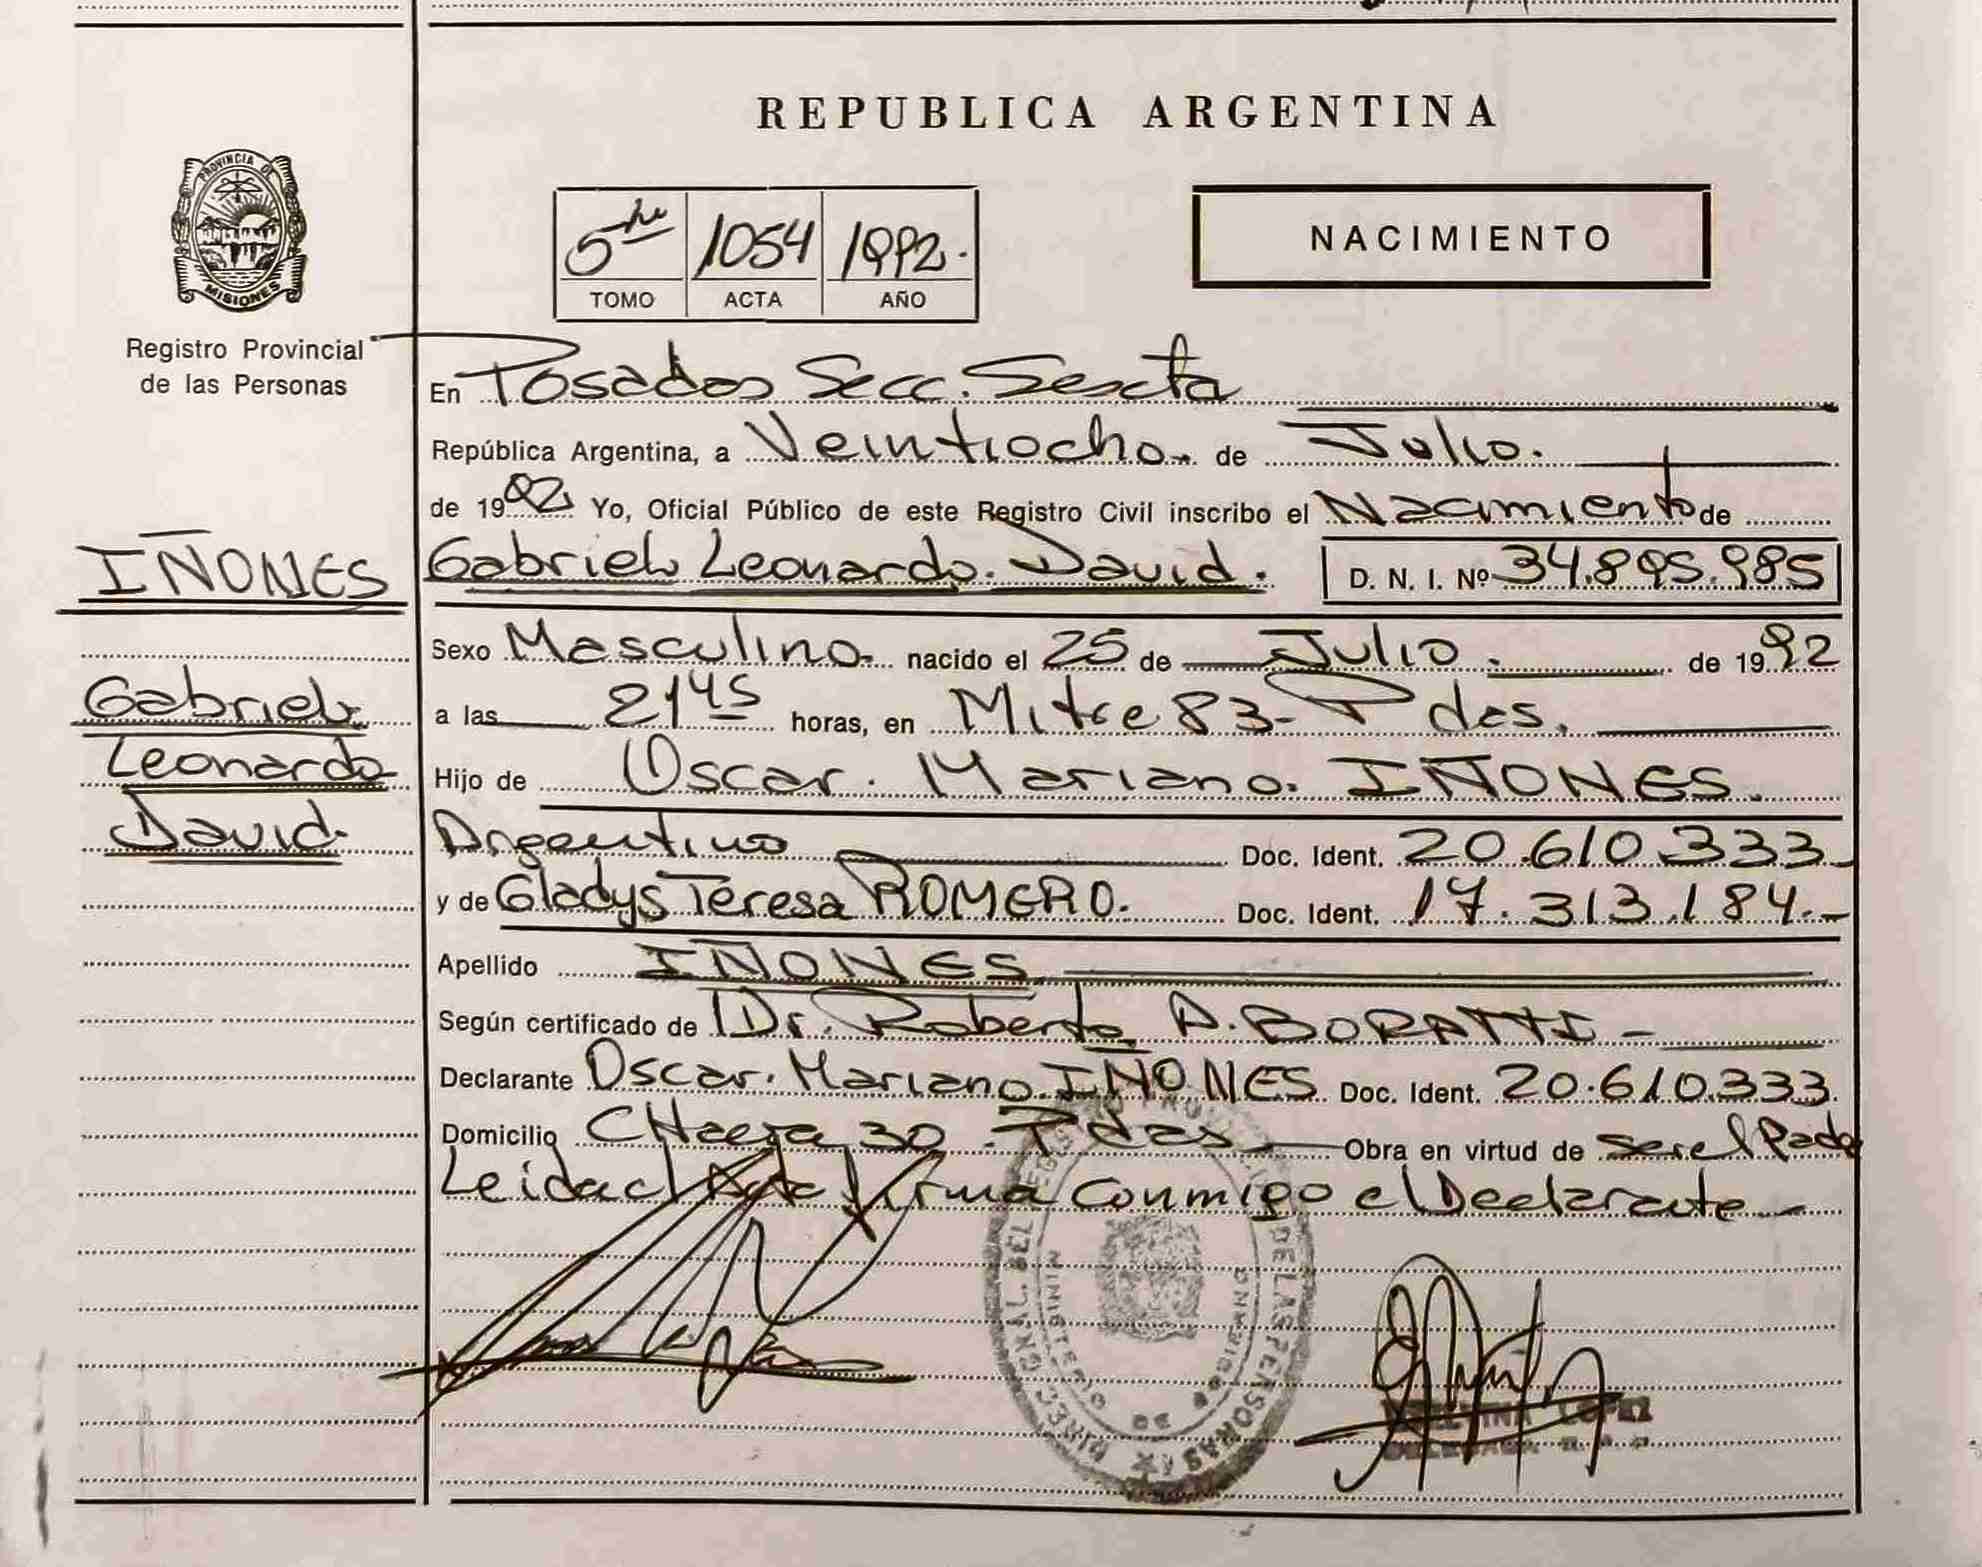 REPUBLICA ARGENTINA
PROVINCIA DE MISIONES
Registro Provincial
de las Personas
5to 1054 1992.
TOMO ACTA AÑO
NACIMIENTO
En Posadas Secc. Sexta
República Argentina, a Veintiocho de Julio.
de 1992 Yo, Oficial Público de este Registro Civil inscribo el Nacimiento de
IÑONES
Gabriel Leonardo David. D. N. I. Nº 34.895.985
Sexo Masculino. nacido el 25 de Julio. de 1992
Gabriel
Leonardo
David.
a las 21 45 horas, en Mitre 83- Pdas.
Hijo de Oscar. Mariano. IÑONES.
Argentino Doc. Ident. 20.610.333-
y de Gladys Teresa ROMERO. Doc. Ident. 17.313.184.-
Apellido IÑONES
Según certificado de Dr. Roberto A. BORATTI-
Declarante Oscar. Mariano. IÑONES Doc. Ident. 20.610.333.
Domicilio 30 - Pdas - Obra en virtud de ser el Padre
Leida el Acta firma conmigo el Declarante-
DE LAS PERSONAS
MINISTERIO DE
LOPEZ